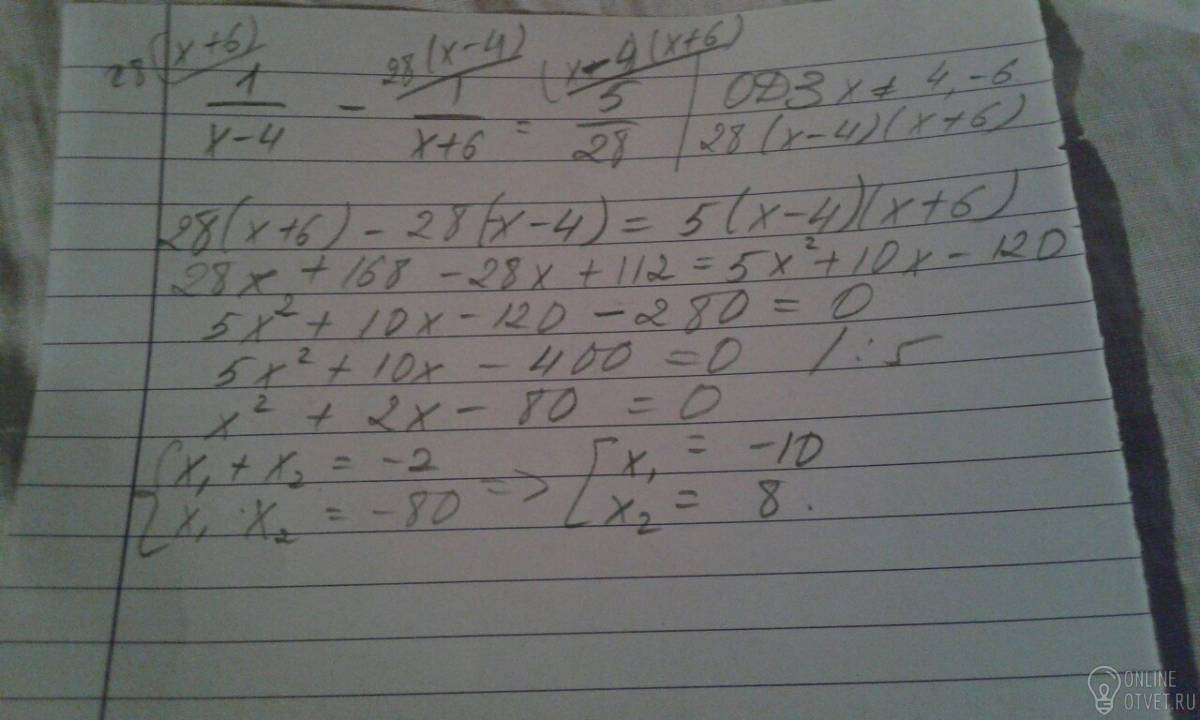 28(x+6) 28(x-4) (x-4)(x+6)
1/(x-4) - 1/(x+6) = 5/28 | ОДЗ x ≠ 4, -6
28(x-4)(x+6)
28(x+6) - 28(x-4) = 5(x-4)(x+6)
28x + 168 - 28x + 112 = 5x² + 10x - 120
5x² + 10x - 120 - 280 = 0
5x² + 10x - 400 = 0 /:5
x² + 2x - 80 = 0
{x₁ + x₂ = -2 => [x₁ = -10
{x₁ · x₂ = -80 [x₂ = 8.
ONLINE
OTVET.RU